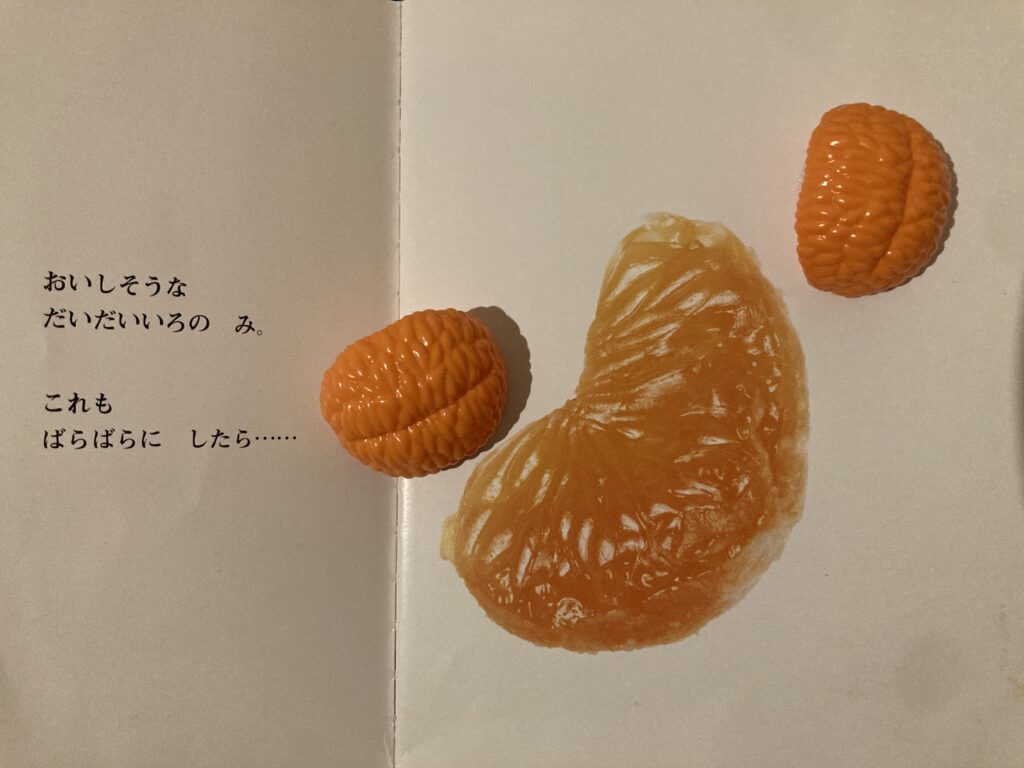 おいしそうな
だいだいいろの　み。
これも
ばらばらに　したら……